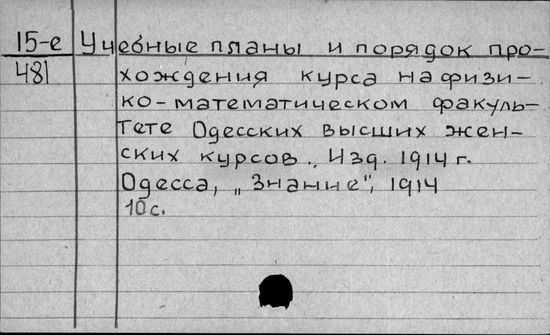 15-е Учебные планы и порядок про-
481 хождения курса на физи-
ко-математическом факуль-
тете Одесских высших жен-
ских курсов. Изд. 1914 г.
Одесса, „Знание", 1914
10 с.